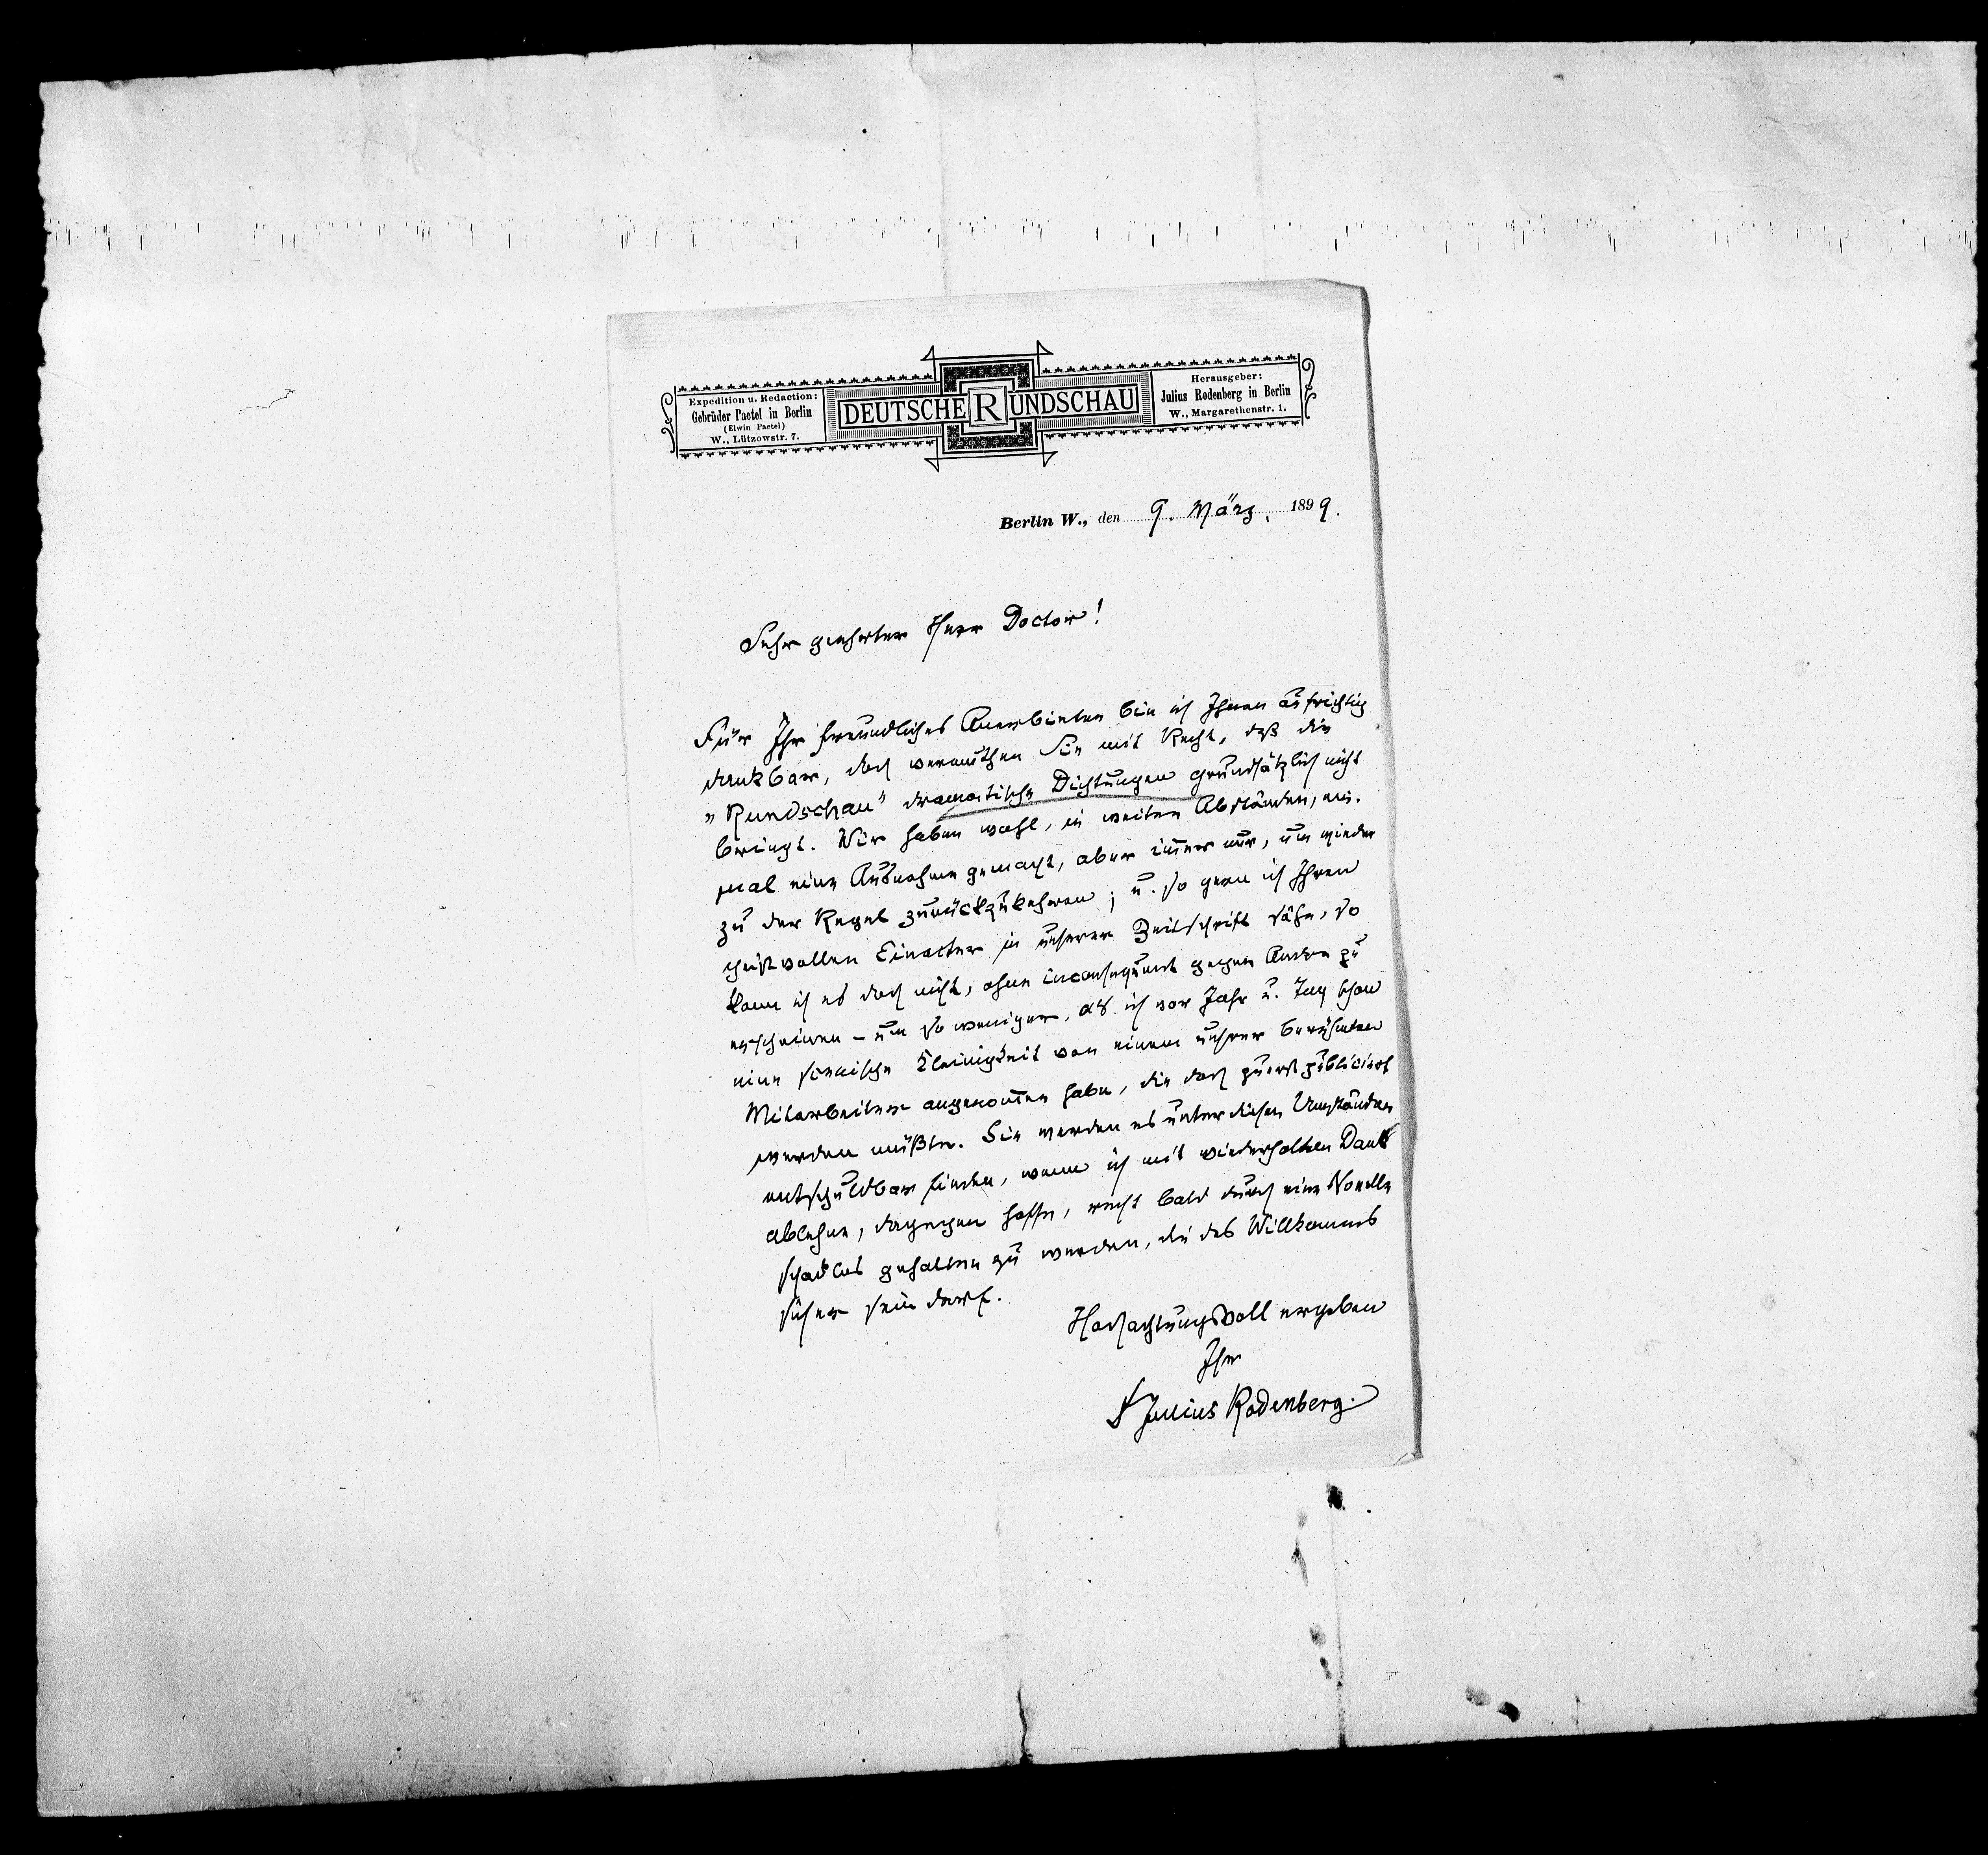 Expedition u. Redaction:
Gebrüder Paetel in Berlin
(Elwin Paetel)
W., Lützowstr. 7.
DEUTSCHE RUNDSCHAU
Herausgeber:
Julius Rodenberg in Berlin
W., Margarethenstr. 1.
Berlin W., den 9. März, 1899.
Sehr geehrter Herr Doctor!
Für Ihr freundliches Anerbieten bin ich Ihnen aufrichtig
dankbar, doch vermuthen Sie mit Recht, daß die
„Rundschau" dramatische Dichtungen grundsätzlich nicht
bringt. Wir haben wohl, in weiten Abständen, ein-
mal eine Ausnahme gemacht, aber immer nur, um wieder
zu der Regel zurückzukehren; u. so gern ich Ihren
geistvollen Einacter in unserer Zeitschrift sähe, so
kann ich es doch nicht, ohne inconsequent gegen Andre zu
erscheinen – um so weniger, als ich vor Jahr u. Tag schon
eine scenische Kleinigkeit von einem unsrer berühmten
Mitarbeiter angenommen habe, die doch zuerst publicirt
werden müßte. Sie werden es unter diesen Umständen
entschuldbar finden, wenn ich mit wiederholtem Dank
ablehne, dagegen hoffe, recht bald durch eine Novelle
schadlos gehalten zu werden, die des Willkomms
sicher sein darf.
Hochachtungsvoll ergeben
Ihr
Julius Rodenberg.